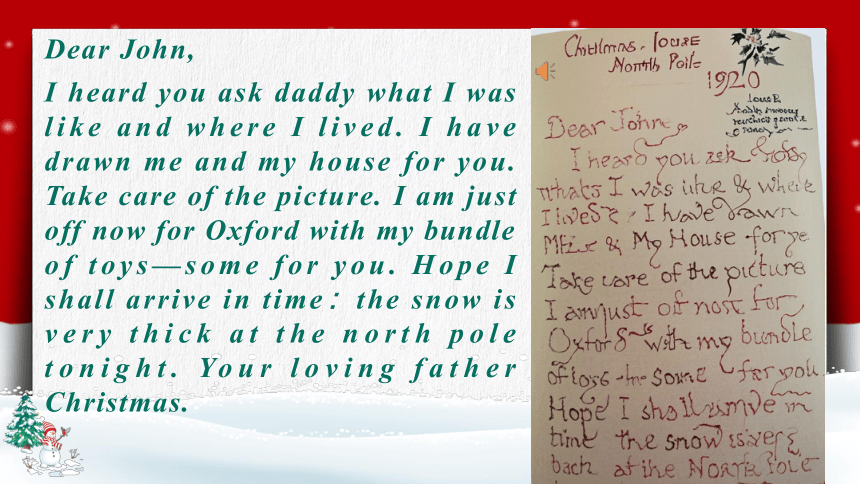 Dear John,
I heard you ask daddy what I was
like and where I lived. I have
drawn me and my house for you.
Take care of the picture. I am just
off now for Oxford with my bundle
of toys—some for you. Hope I
shall arrive in time: the snow is
very thick at the north pole
tonight. Your loving father
Christmas.
Christmas House
North Pole
1920
Dear John
I heard you ask
I was like & where
I have drawn
& My House for
Take care of the picture
I am just off for
Oxford with my bundle
of toys some for you
Hope I shall arrive in
time the snow is
at the NORTH Pole